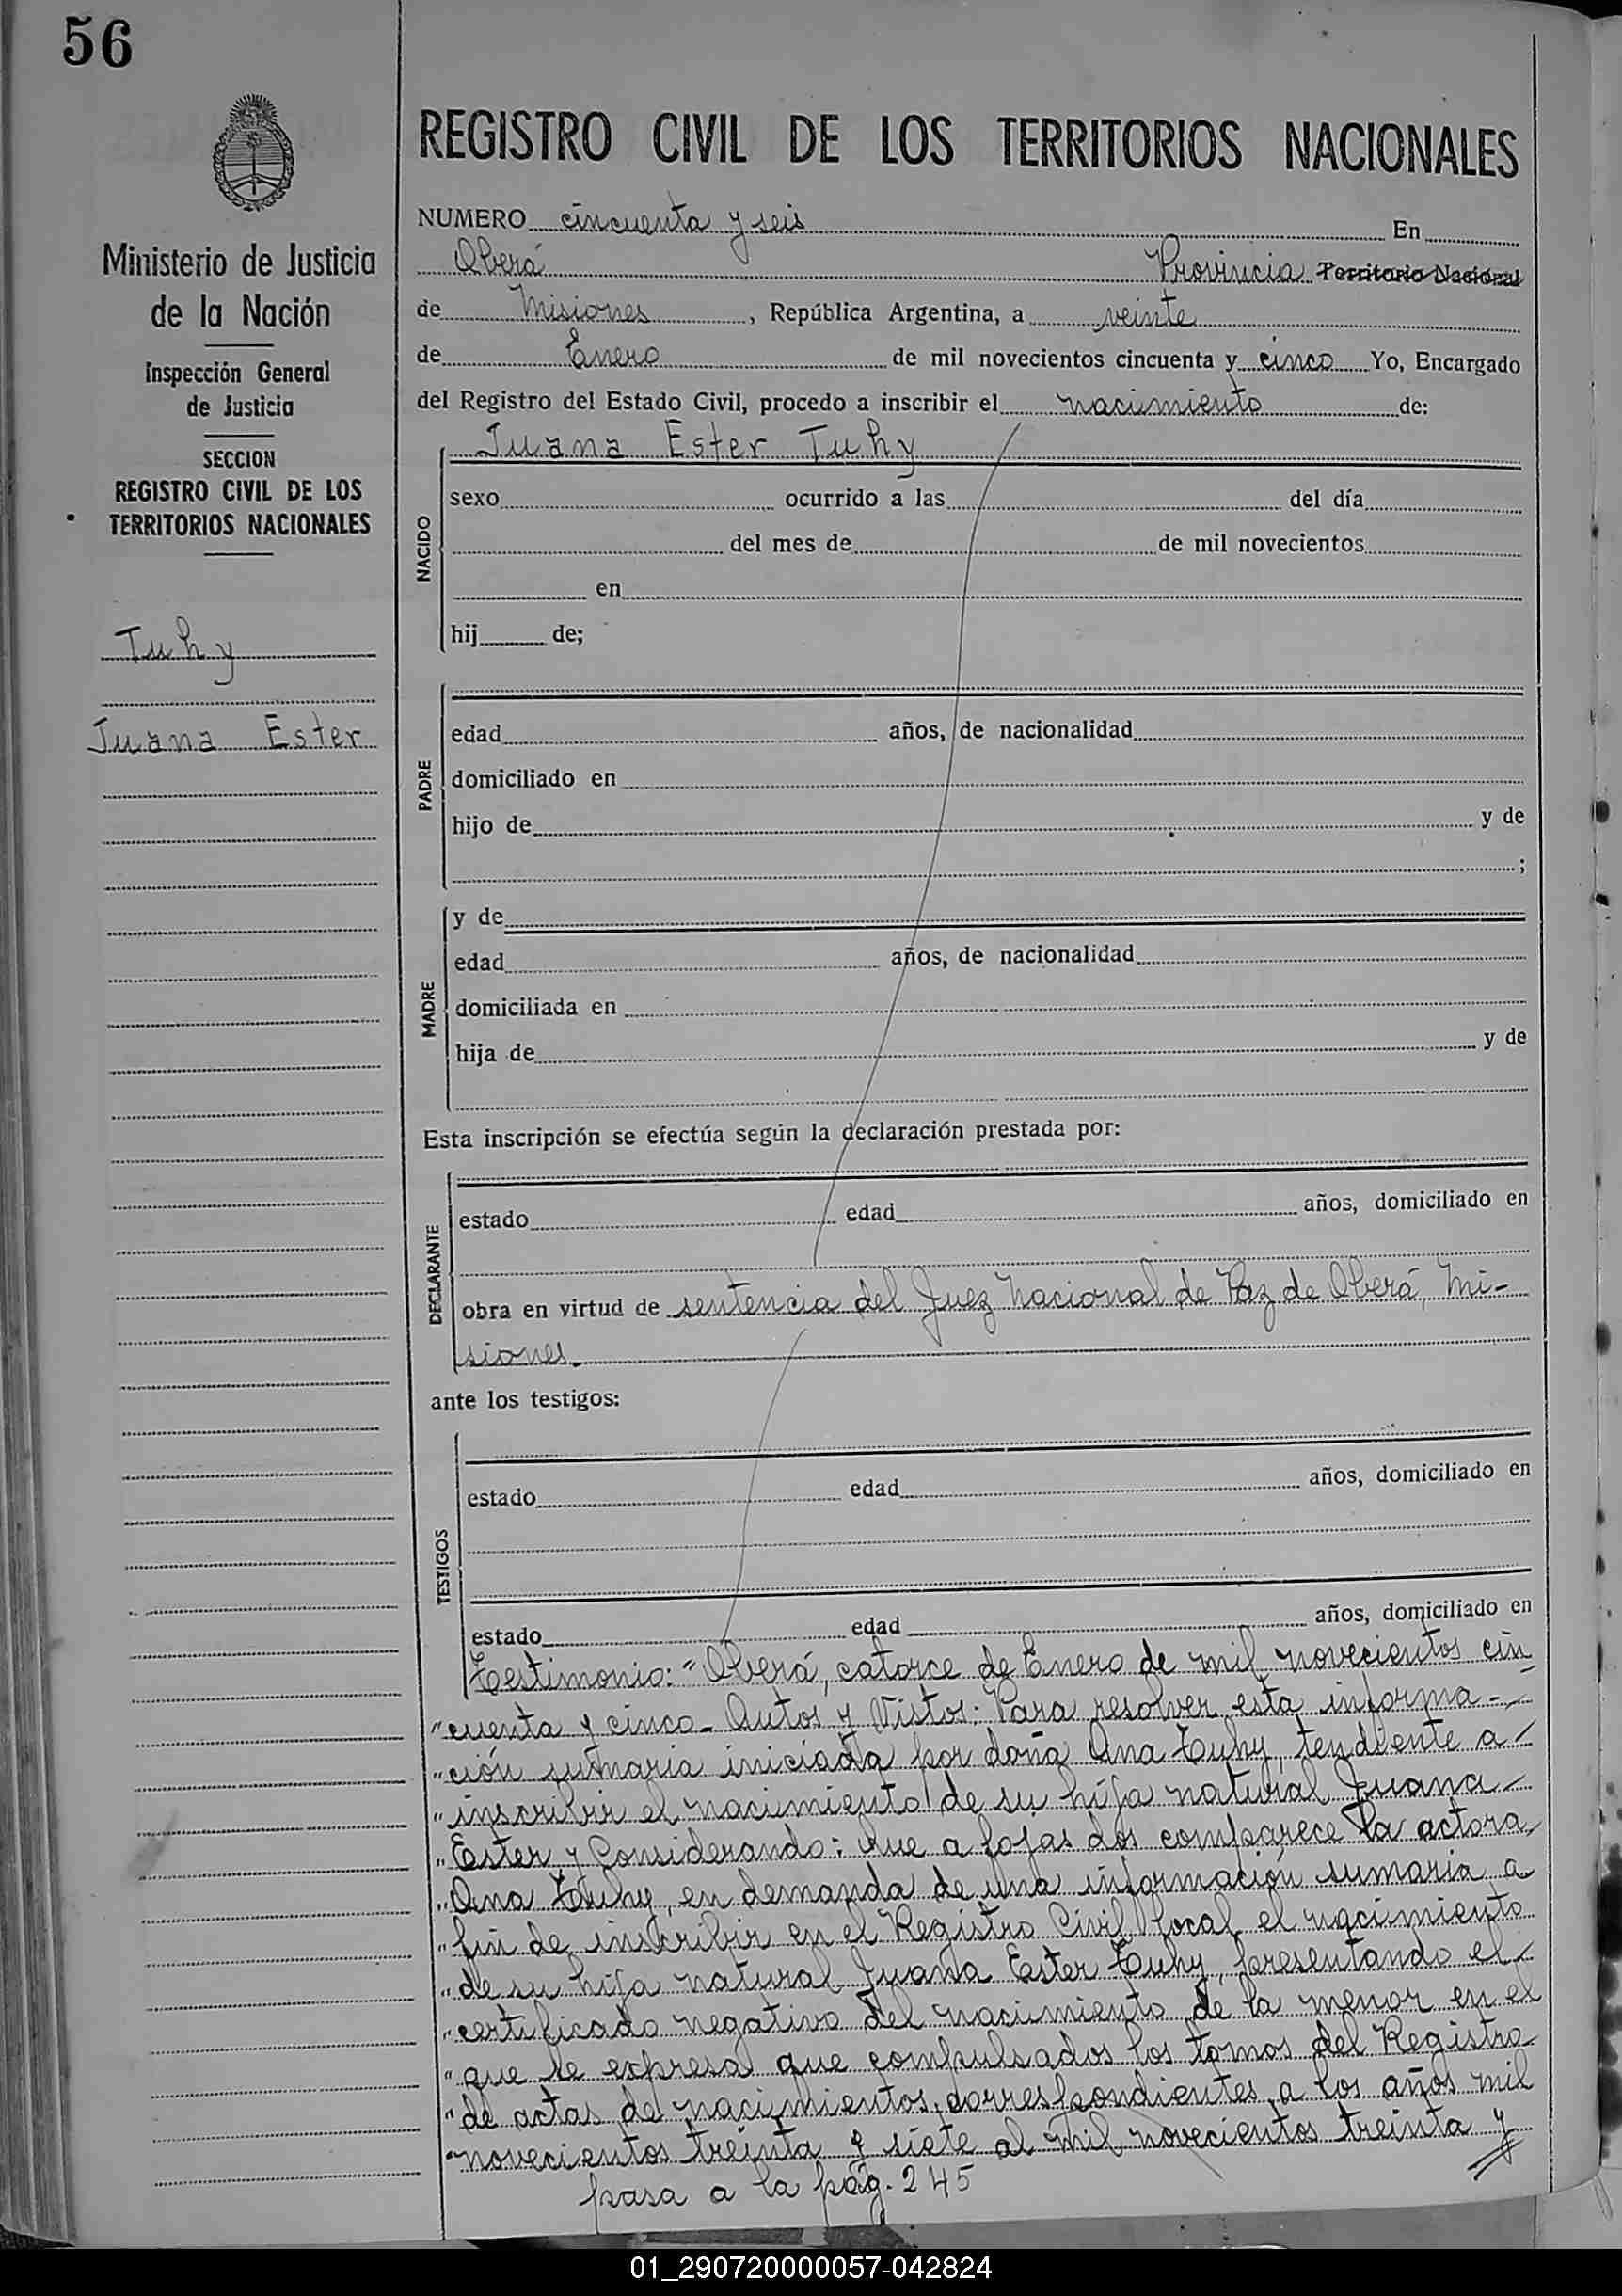 56
Ministerio de Justicia
de la Nación
Inspección General
de Justicia
SECCION
REGISTRO CIVIL DE LOS
TERRITORIOS NACIONALES
Tuhy
Juana Ester
REGISTRO CIVIL DE LOS TERRITORIOS NACIONALES
NUMERO cincuenta y seis En
Oberá Provincia Territorio Nacional
de Misiones, República Argentina, a veinte
de Enero de mil novecientos cincuenta y cinco Yo, Encargado
del Registro del Estado Civil, procedo a inscribir el nacimiento de:
Juana Ester Tuhy
NACIDO
sexo ocurrido a las del día
del mes de de mil novecientos
en
hij de;
PADRE
edad años, de nacionalidad
domiciliado en
hijo de y de
;
MADRE
y de
edad años, de nacionalidad
domiciliada en
hija de y de
Esta inscripción se efectúa según la declaración prestada por:
DECLARANTE
estado edad años, domiciliado en
obra en virtud de sentencia del Juez Nacional de Paz de Oberá, Mi-
siones.
ante los testigos:
TESTIGOS
estado edad años, domiciliado en
estado edad años, domiciliado en
Testimonio: "Oberá, catorce de Enero de mil novecientos cin
"cuenta y cinco- Autos y Vistos: Para resolver esta informa-
"ción sumaria iniciada por doña Ana Tuhy, tendiente a
"inscribir el nacimiento de su hija natural Juana
"Ester, y Considerando: Que a fojas dos comparece la actora
"Ana Tuhy, en demanda de una información sumaria a
"fin de inscribir en el Registro Civil local el nacimiento
"de su hija natural Juana Ester Tuhy, presentando el
"certificado negativo del nacimiento de la menor en el
"que se expresa que compulsados los tomos del Registro
"de actas de nacimientos, correspondientes a los años mil
"novecientos treinta y siete al mil novecientos treinta y
pasa a la pág. 245
01_290720000057-042824